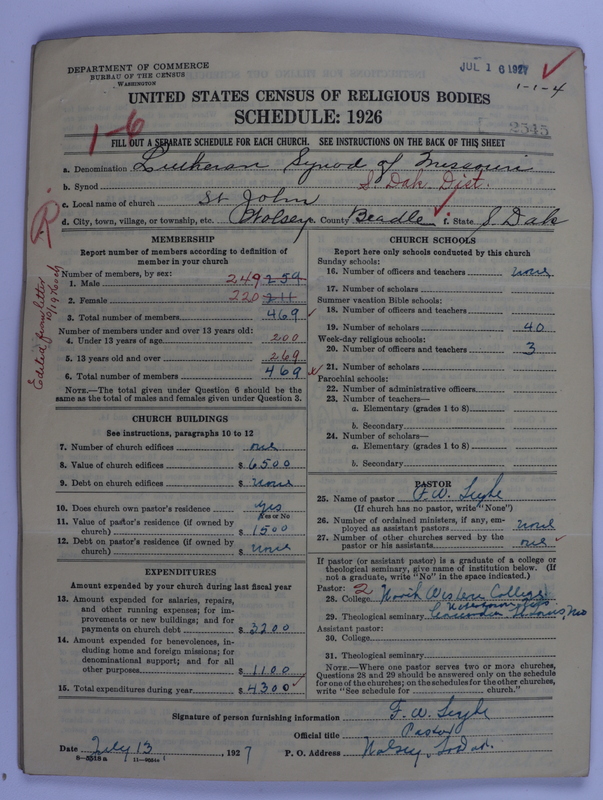 DEPARTMENT OF COMMERCE
BUREAU OF THE CENSUS
WASHINGTON
JUL 16 1927
1-1-4
UNITED STATES CENSUS OF RELIGIOUS BODIES
SCHEDULE: 1926
1-6
2545
FILL OUT A SEPARATE SCHEDULE FOR EACH CHURCH. SEE INSTRUCTIONS ON THE BACK OF THIS SHEET
a. Denomination Lutheran Synod of Missouri
b. Synod S. Dak. Dist.
c. Local name of church St John
d. City, town, village, or township, etc. Wolsey e. County Beadle f. State S. Dak
MEMBERSHIP
Report number of members according to definition of member in your church
Number of members, by sex:
1. Male 249 259
2. Female 220 211
3. Total number of members 469
Number of members under and over 13 years old:
4. Under 13 years of age 200
5. 13 years old and over 269
6. Total number of members 469
NOTE.—The total given under Question 6 should be the same as the total of males and females given under Question 3.
CHURCH BUILDINGS
See instructions, paragraphs 10 to 12
7. Number of church edifices one
8. Value of church edifices $ 6500
9. Debt on church edifices $ None
10. Does church own pastor's residence yes
Yes or No
11. Value of pastor's residence (if owned by church) $ 1500
12. Debt on pastor's residence (if owned by church) $ None
EXPENDITURES
Amount expended by your church during last fiscal year
13. Amount expended for salaries, repairs, and other running expenses; for improvements or new buildings; and for payments on church debt $ 3200
14. Amount expended for benevolences, including home and foreign missions; for denominational support; and for all other purposes $ 1100
15. Total expenditures during year $ 4300
CHURCH SCHOOLS
Report here only schools conducted by this church
Sunday schools:
16. Number of officers and teachers none
17. Number of scholars
Summer vacation Bible schools:
18. Number of officers and teachers
19. Number of scholars 40
Week-day religious schools:
20. Number of officers and teachers 3
21. Number of scholars
Parochial schools:
22. Number of administrative officers
23. Number of teachers—
a. Elementary (grades 1 to 8)
b. Secondary
24. Number of scholars—
a. Elementary (grades 1 to 8)
b. Secondary
PASTOR
25. Name of pastor F. W.
(If church has no pastor, write "None")
26. Number of ordained ministers, if any, employed as assistant pastors none
27. Number of other churches served by the pastor or his assistants one
If pastor (or assistant pastor) is a graduate of a college or theological seminary, give name of institution below. (If not a graduate, write "No" in the space indicated.)
Pastor: 2
28. College North Western College
Watertown Wis
29. Theological seminary Concordia St Louis, Mo
Assistant pastor:
30. College
31. Theological seminary
NOTE.—Where one pastor serves two or more churches, Questions 28 and 29 should be answered only on the schedule for one of the churches; on the schedules for the other churches, write "See schedule for church."
Signature of person furnishing information F. W.
Official title Pastor
Date July 13, 1927 P. O. Address Wolsey, So Dak.
8-5516a